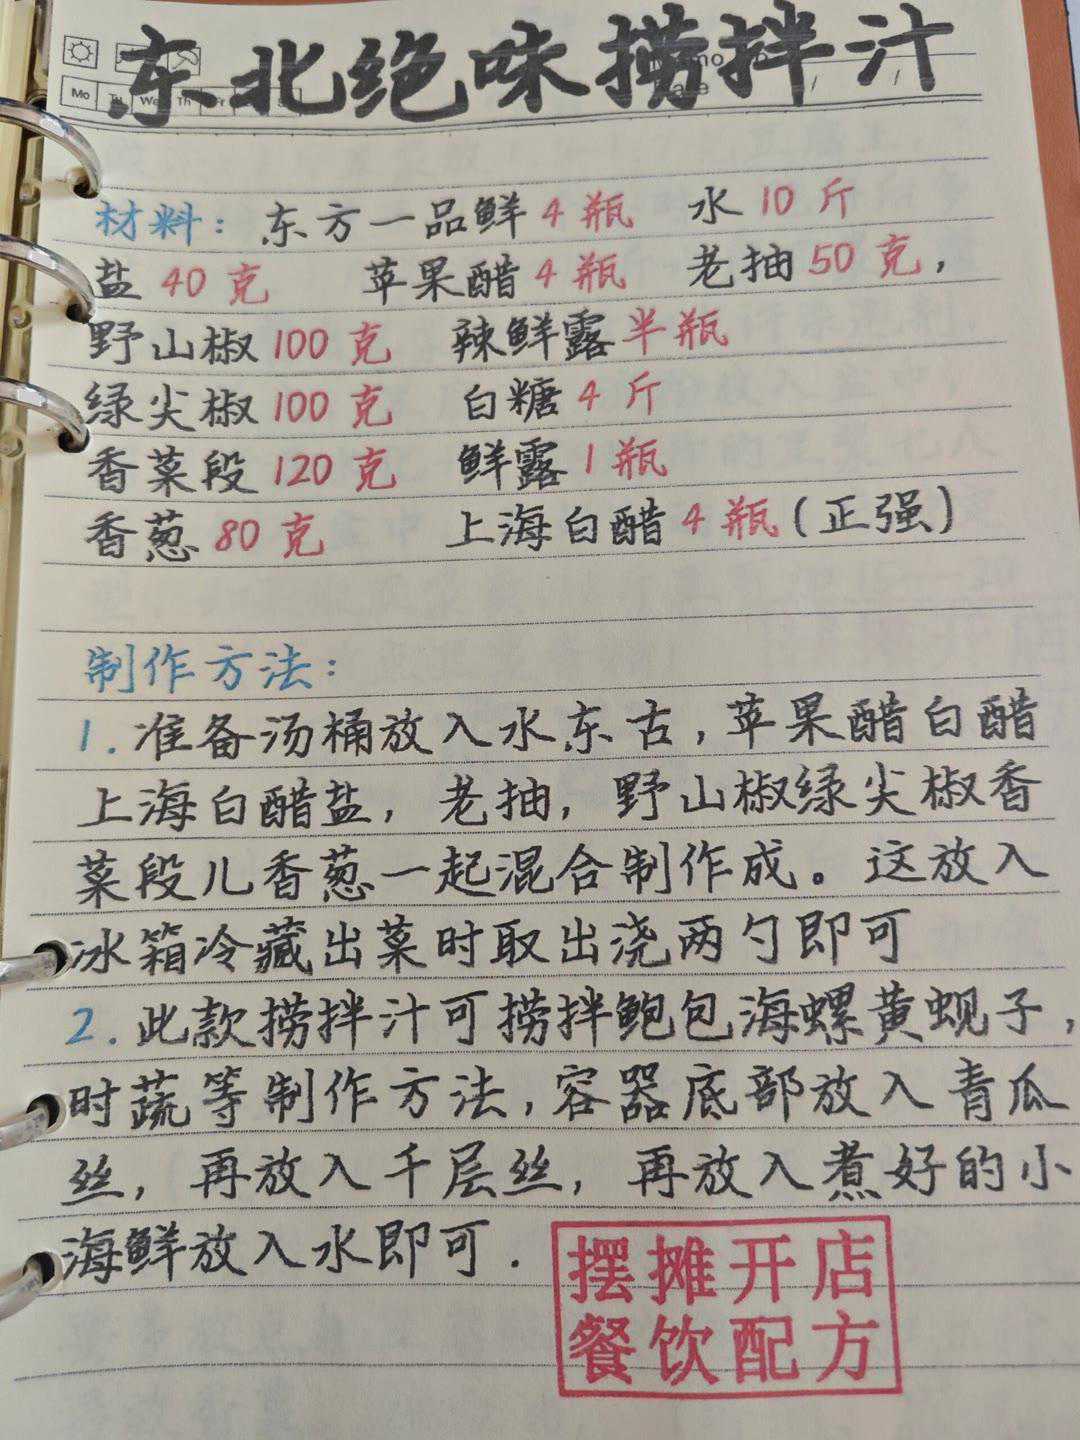 东北绝味捞拌汁
材料：东方一品鲜4瓶 水10斤
盐40克 苹果醋4瓶 老抽50克，
野山椒100克 辣鲜露半瓶
绿尖椒100克 白糖4斤
香菜段120克 鲜露1瓶
香葱80克 上海白醋4瓶(正强)
制作方法：
1.准备汤桶放入水东古，苹果醋白醋
上海白醋盐，老抽，野山椒绿尖椒香
菜段儿香葱一起混合制作成。这放入
冰箱冷藏出菜时取出浇两勺即可
2.此款捞拌汁可捞拌鲍包海螺黄蚬子，
时蔬等制作方法，容器底部放入青瓜
丝，再放入千层丝，再放入煮好的小
海鲜放入水即可.
摆摊开店
餐饮配方